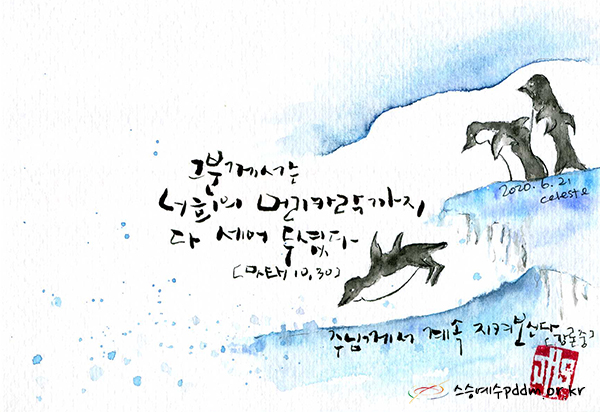 그분께서는
너희의 머리카락까지
다 세어 두셨다
[마태 10,30]
2020.6.21
celeste
주님께서 계속 지켜보신다
[강론중]
JHS
스승예수pddm.or.kr